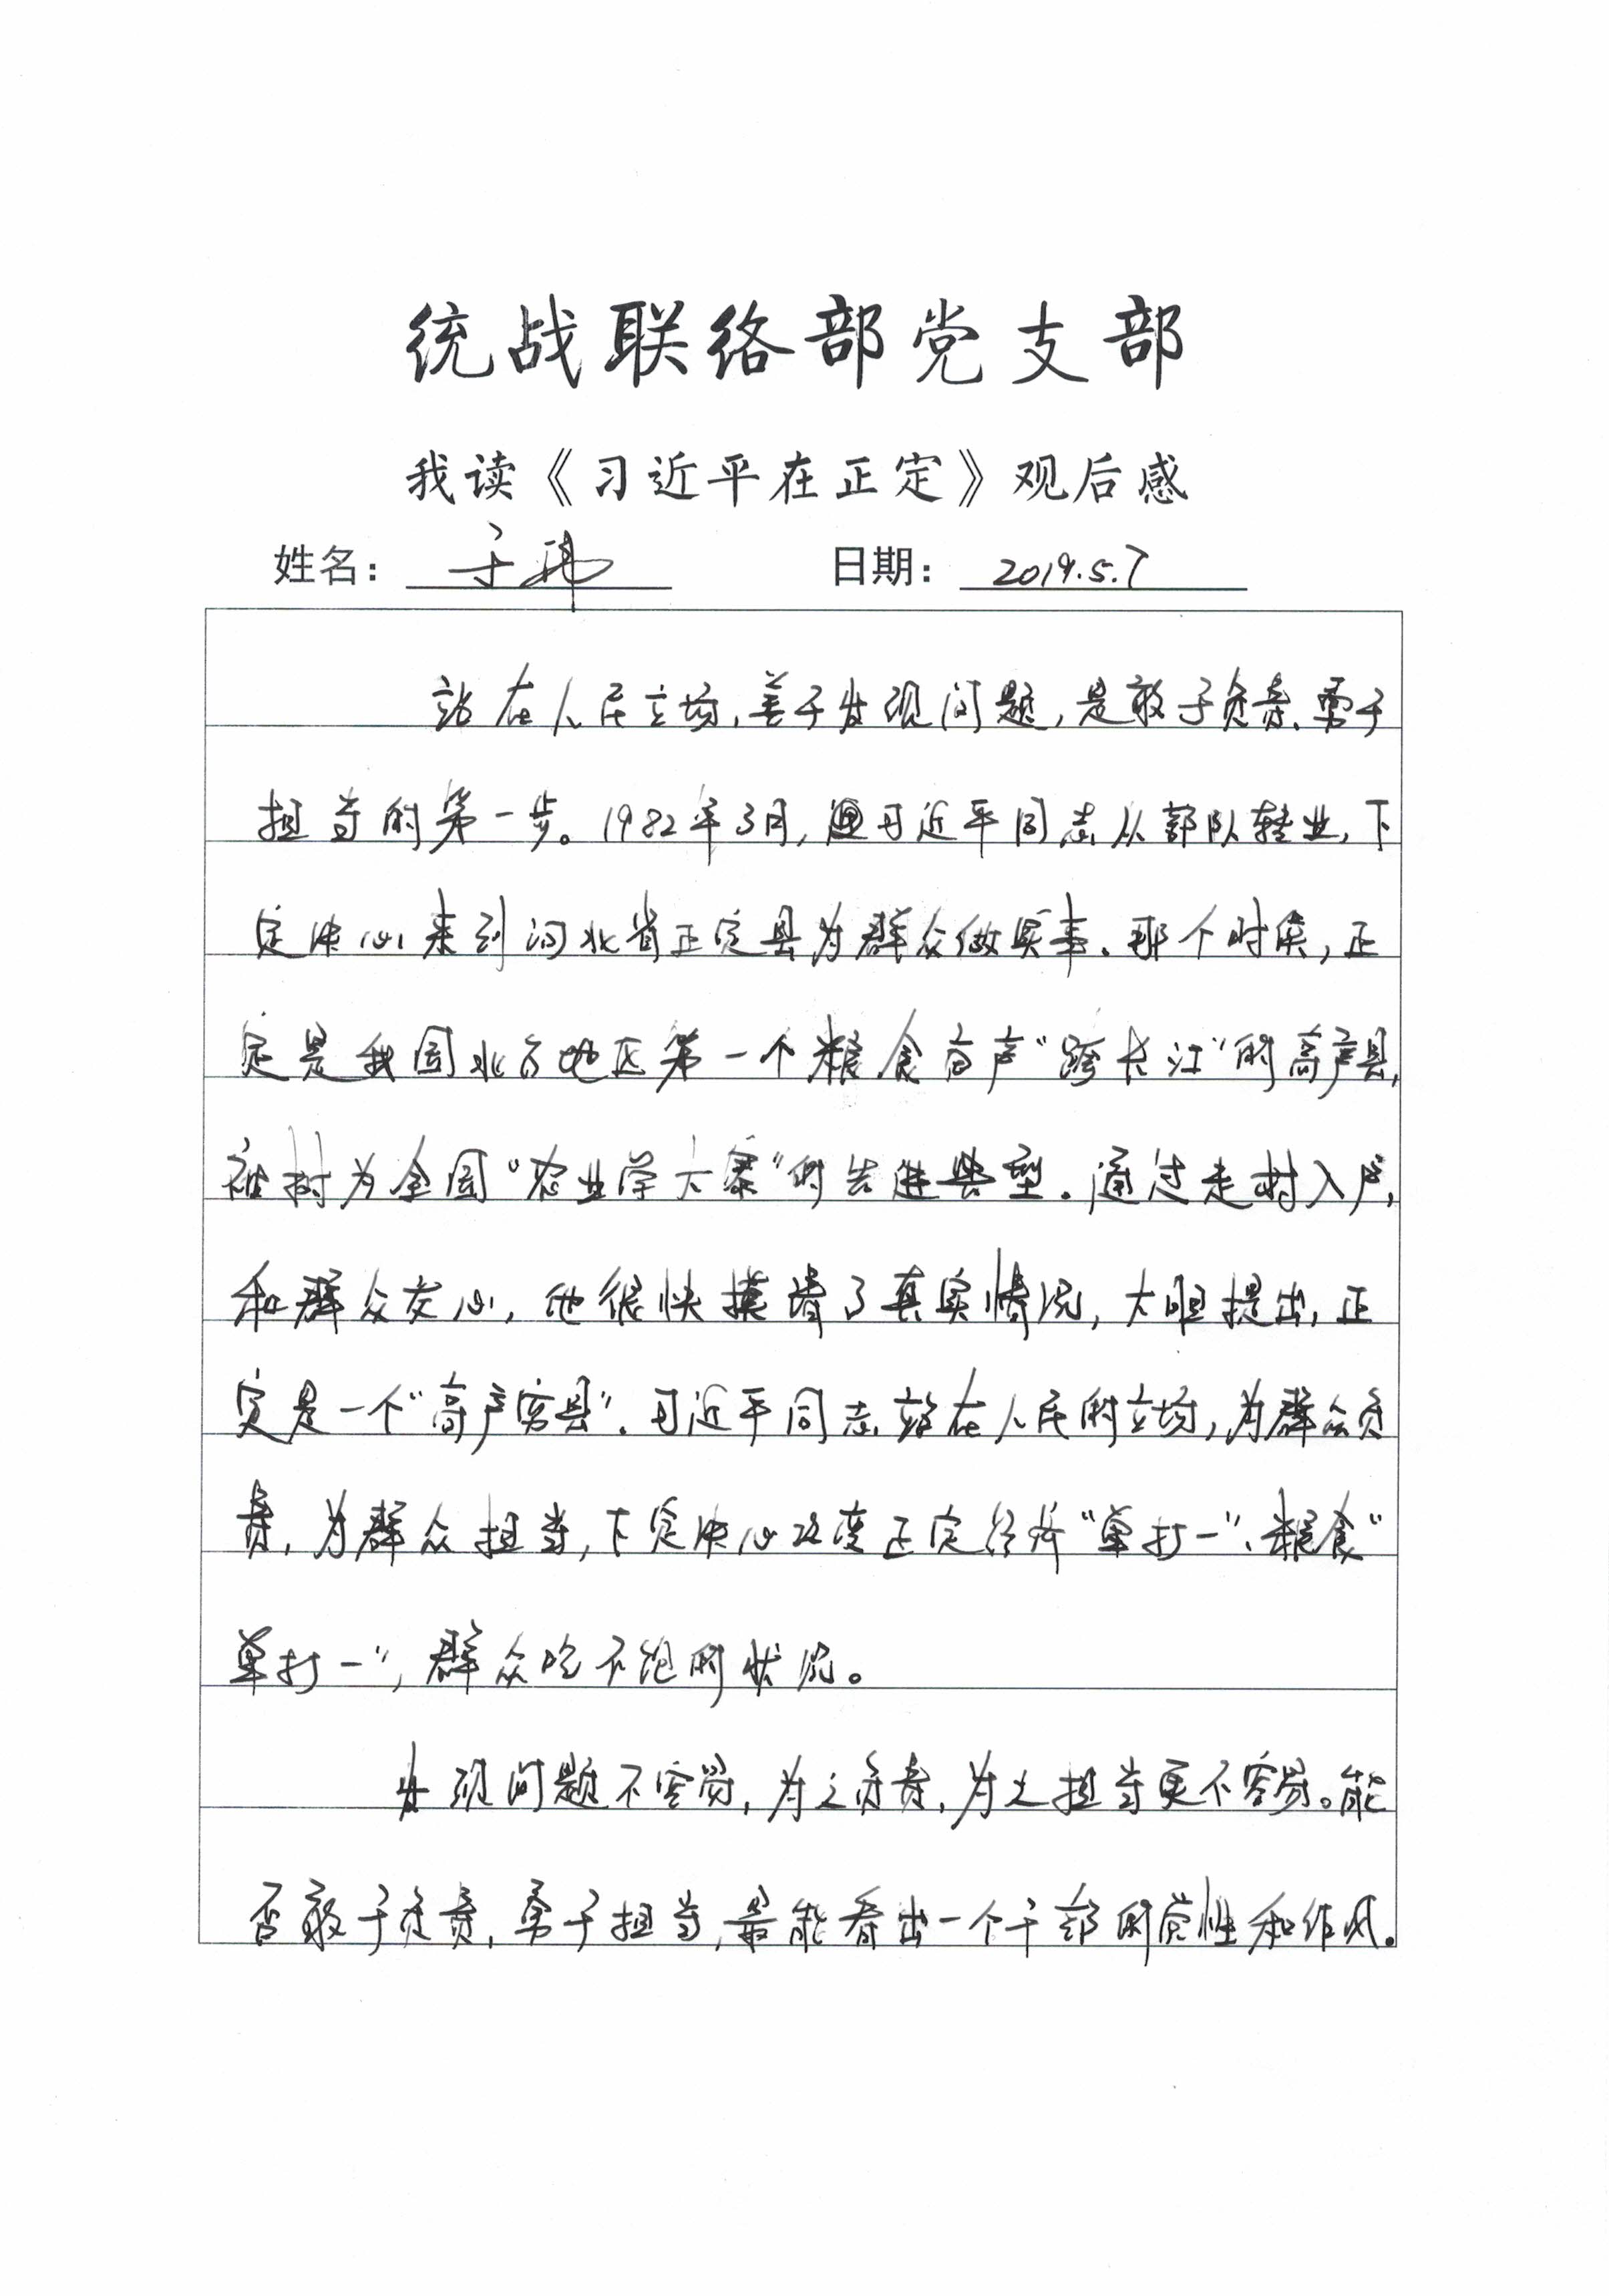 统战联络部党支部
我读《习近平在正定》观后感
姓名： 于 日期： 2019.5.7
站在人民立场，善于发现问题，是敢于负责、勇于
担当的第一步。1982年3月，习近平同志从部队转业，下
定决心来到河北省正定县为群众做实事。那个时候，正
定是我国北方地区第一个粮食亩产“跨长江”的高产县，
被树为全国“农业学大寨”的先进典型。通过走村入户，
和群众交心，他很快摸清了真实情况，大胆提出，正
定是一个“高产穷县”。习近平同志站在人民的立场，为群众负
责，为群众担当，下定决心改变正定经济“单打一”、粮食“
单打一”，群众吃不饱的状况。
发现问题不容易，为之负责，为之担当更不容易。能
否敢于负责，勇于担当，最能看出一个干部的党性和作风。